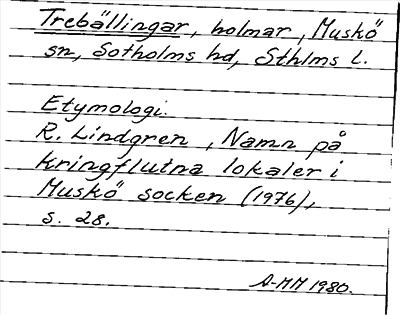 Trebällingar, holmar, Muskö
sn, Sotholms hd, Sthlms l.
Etymologi:
R. Lindgren, Namn på
kringflutna lokaler i
Muskö socken (1976),
s. 28.
A-MM 1980.